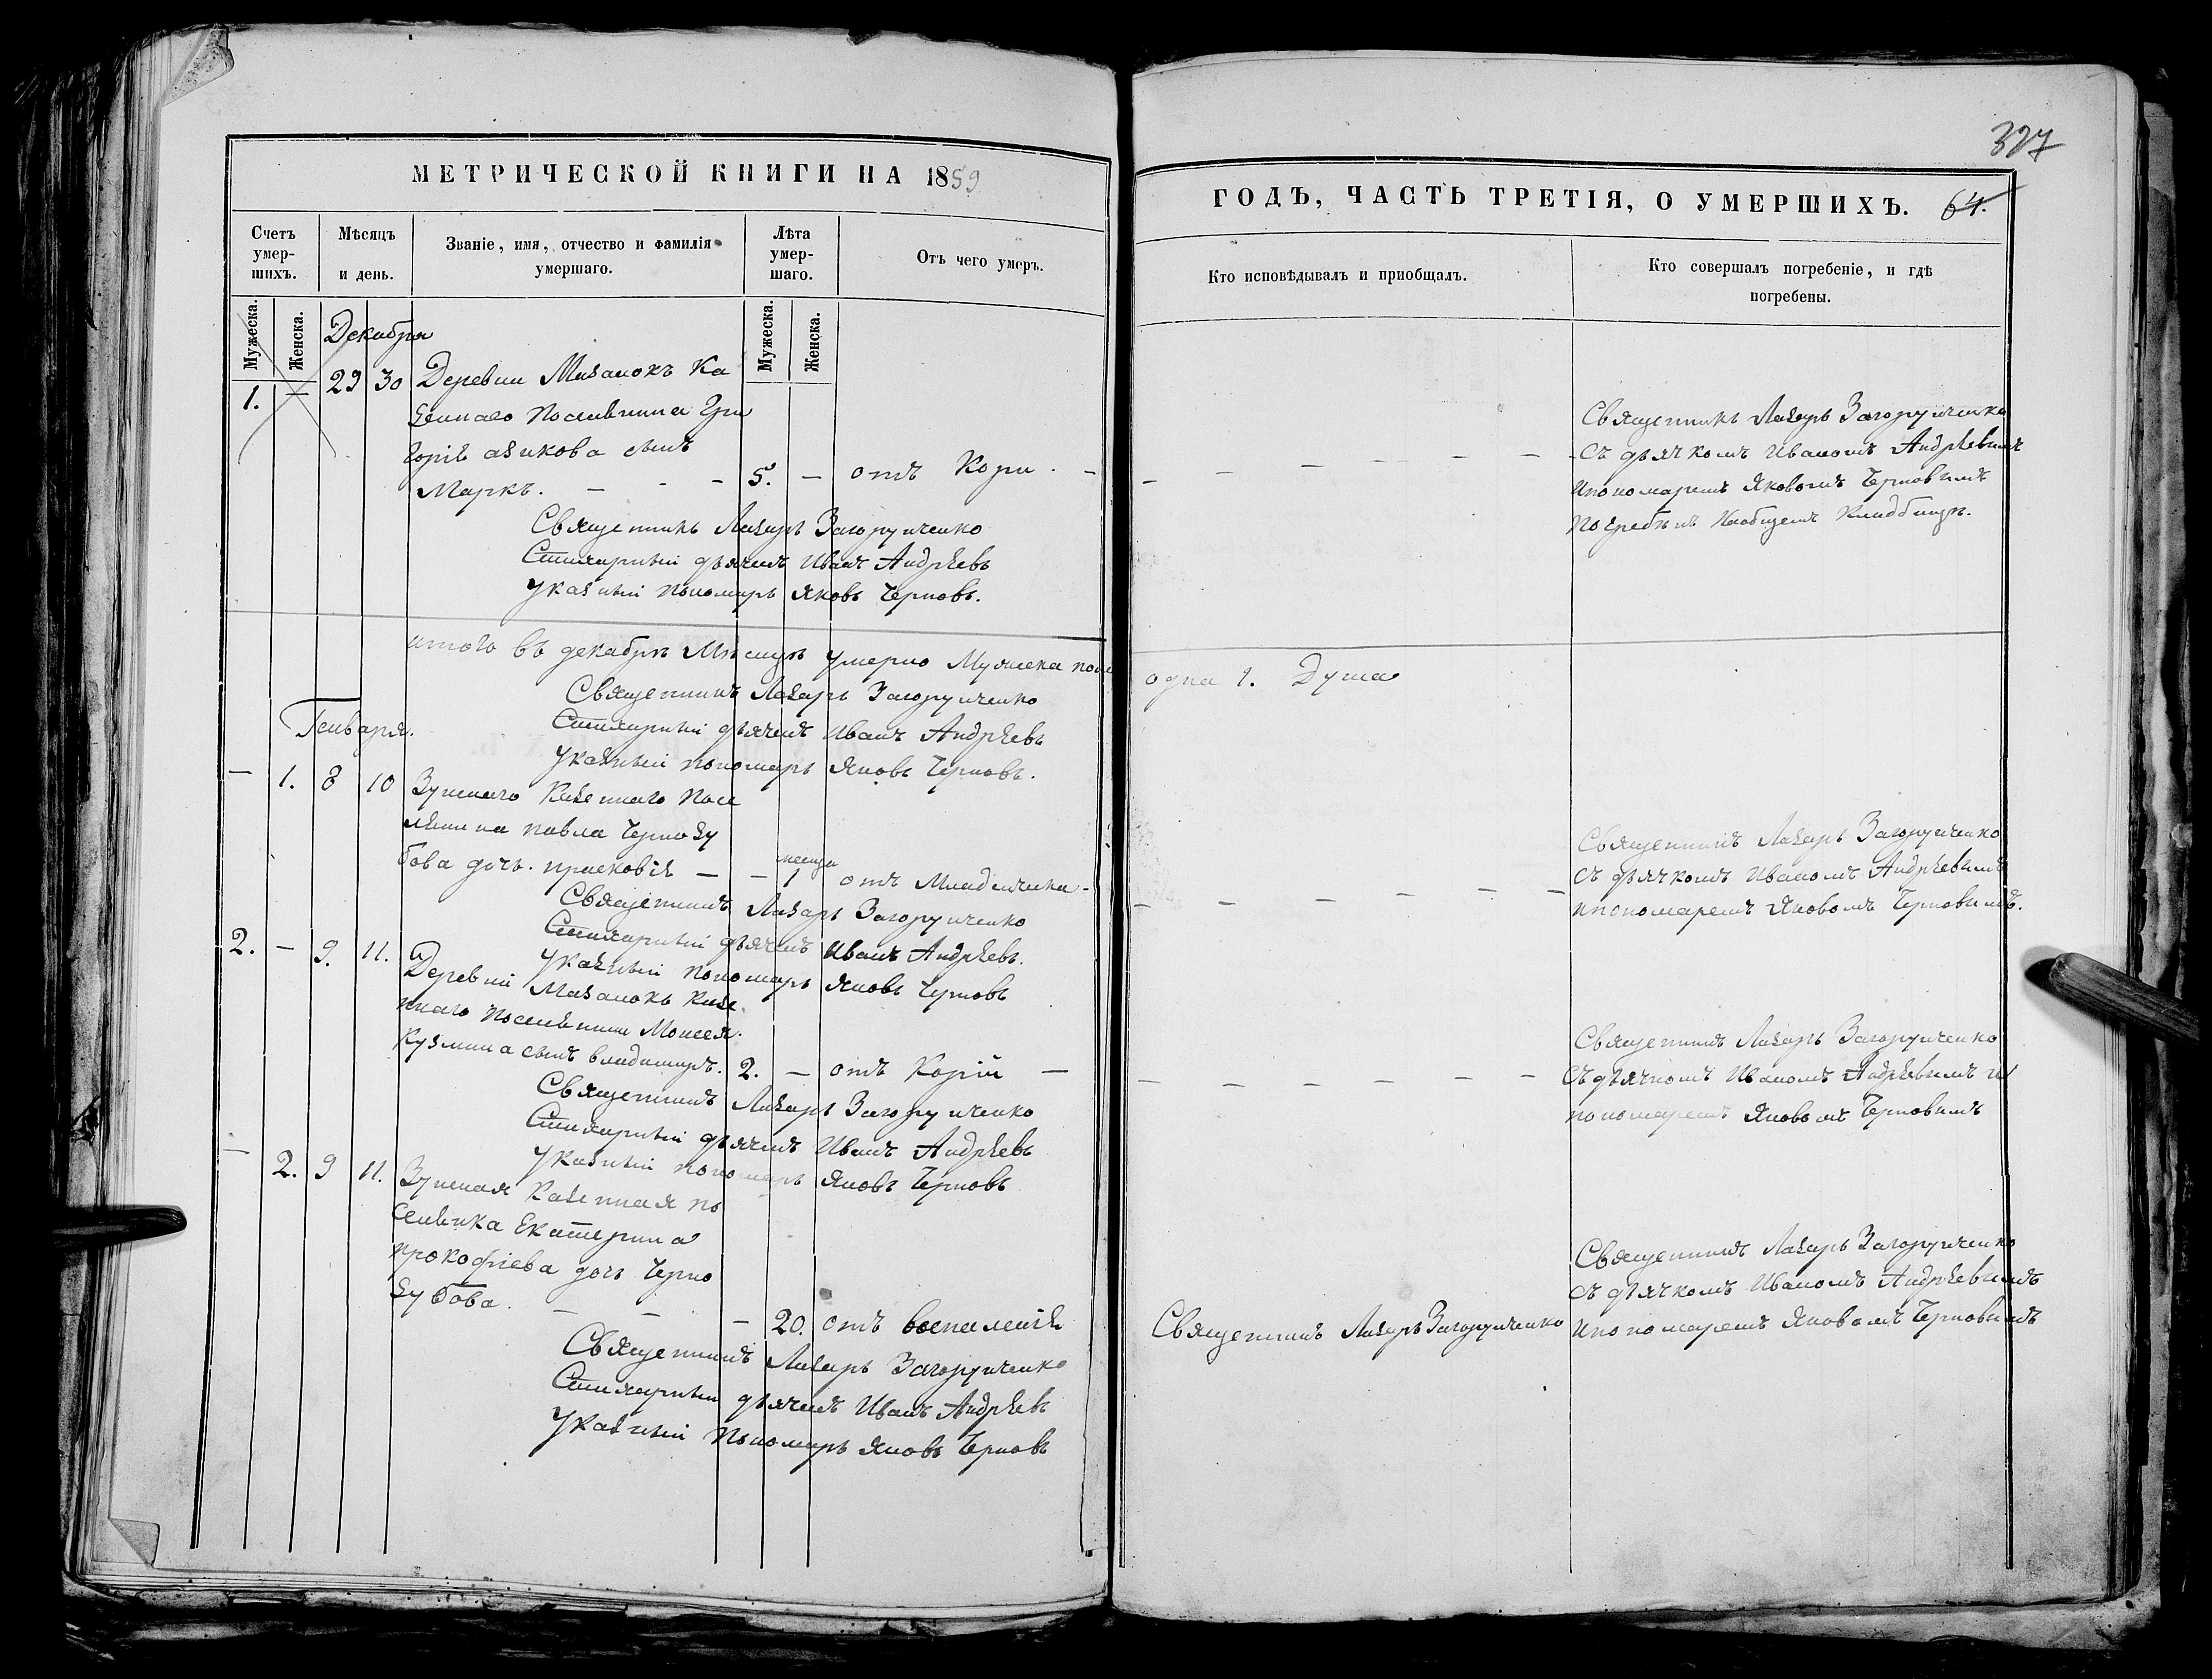 МЕТРИЧЕСКОЙ КНИГИ НА 1859
Счетъ умер-шихъ.
Мѣсяцъ и день.
Званіе, имя, отчество и фамилія умершаго.
Лѣта умер-шаго.
Отъ чего умеръ.
Мужеска.
Женска.
Мужеска.
Женска.
Декабря
1. — 29 30 Деревни Мазанокъ Ка
зеннаго поселянина Гри
горія сынъ
Маркъ. — — — 5. — отъ Кори. —
Священникъ Лазарь Загоруиченко
Стихарный дьячекъ Иванъ Андрѣевъ
Указный пономарь Яковъ Черновъ.
итого въ декабрѣ Мѣсяцѣ умерло Мужеска пола
Священникъ Лазарь Загоруиченко
Генваря.
Стихарный дьячекъ Иванъ Андрѣевъ
Указный пономарь Яковъ Черновъ.
— 1. 8 10 Зуйскаго Казеннаго посе
лянина павла Чернозу
бова дочь. прасковія — — 1 отъ Младенческа —
Священникъ Лазарь Загоруиченко
Стихарный дьячекъ Иванъ Андрѣевъ.
Указный пономарь Яковъ Черновъ
2. — 9. 11. Деревни Мазанокъ Казе
ннаго поселянина Моисея
Кузмина сынъ владимиръ. 2. — отъ Корій —
Священникъ Лазарь Загоруиченко
Стихарный дьячекъ Иванъ Андрѣевъ
Указный пономарь Яковъ Черновъ
— 2. 9 11. Зуйская Казенная по
селянка Екатерина
прокофіева дочь Черно
зубова. — — — 20. отъ воспаленія
Священникъ Лазарь Загоруиченко
Стихарный дьячекъ Иванъ Андрѣевъ
Указный пономарь Яковъ Черновъ
327
ГОДЪ, ЧАСТЬ ТРЕТІЯ, О УМЕРШИХЪ. 64.
Кто исповѣдывалъ и пріобщалъ.
Кто совершалъ погребеніе, и гдѣ погребены.
Священникъ Лазарь Загоруиченко
съ дьячкомъ Иваномъ Андрѣевымъ
и пономаремъ Яковомъ Черновымъ
погребенъ на общемъ Кладбищѣ.
одна 1. Душа
Священникъ Лазарь Загоруиченко
съ дьячкомъ Иваномъ Андрѣевымъ
и пономаремъ Яковомъ Черновымъ.
Священникъ Лазарь Загоруиченко
съ дьячкомъ Иваномъ Андрѣевымъ и
пономаремъ Яковомъ Черновымъ
Священникъ Лазарь Загоруиченко
съ дьячкомъ Иваномъ Андрѣевымъ
Священникъ Лазарь Загоруиченко
и пономаремъ Яковомъ Черновымъ